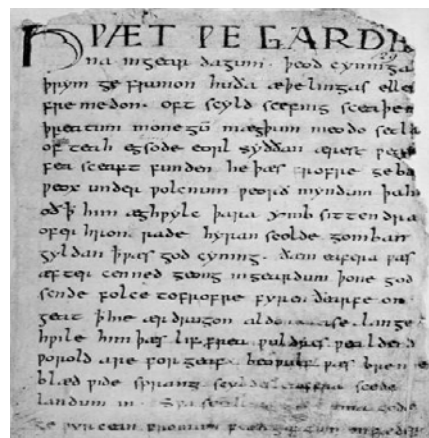 HǷÆT ǷE GARDE
na ingear dagum. þeod cyninga
þrym ge frunon huða æþelingas elle
fre medon. oft scyld scefing sceaþen
þreatum monegū mægþum meodo setla
of teah egsode eorl syððan ærest ƿear
fea sceaft funden he þæs frofre geba
ƿeox under ƿolcnum ƿeorð myndum þah
oð ꝥ him æghƿylc þara ymb sittendra
ofer hron rade hyran scolde gomban
gyldan ꝥ ƿæs god cyning. ðæm eafera ƿæs
æfter cenned geong ingeardum þone god
sende folce tofrofre fyren ðearfe on
geat ꝥ hie ær drugon aldor ase. lange
hƿile him þæs lif frea ƿuldres ƿealdend
ƿorold are forgeaf. beoƿulf ƿæs breme
blæd ƿide sprang scyldes eafera scede
landum in. Sƿa sceal uma gode
ge ƿyrcean fromum feoh giftum on fæder